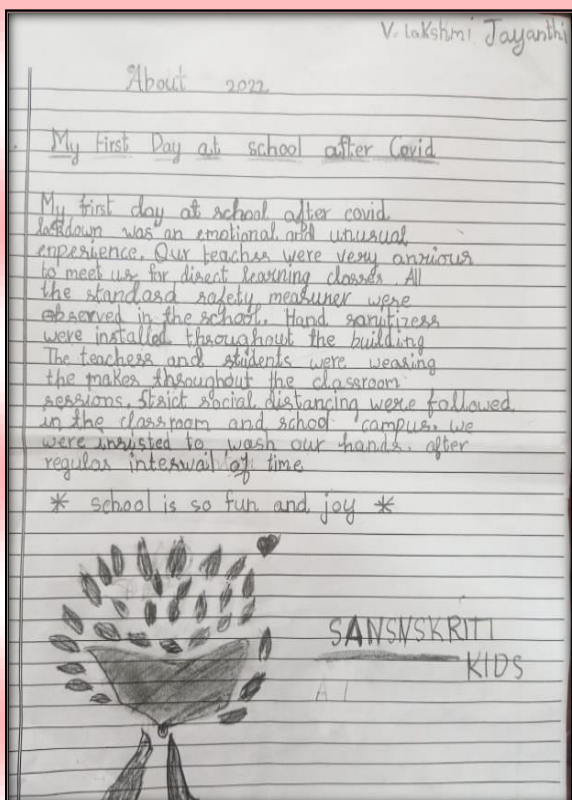 V. Lakshmi Jayanthi
About 2022
My First Day at school after Covid
My first day at school after covid
lockdown was an emotional and unusual
enperience. Our teacher were very anxious
to meet us for direct learning classes. All
the standard safety measuner were
observed in the school. Hand sanitizers
were installed throughout the building
The teachers and students were wearing
the makes throughout the classroom
sessions. Strict social distancing were followed
in the classroom and school campus. we
were insisted to wash our hands. after
regular interwail of time
* school is so fun and joy *
SANSNSKRITI
KIDS